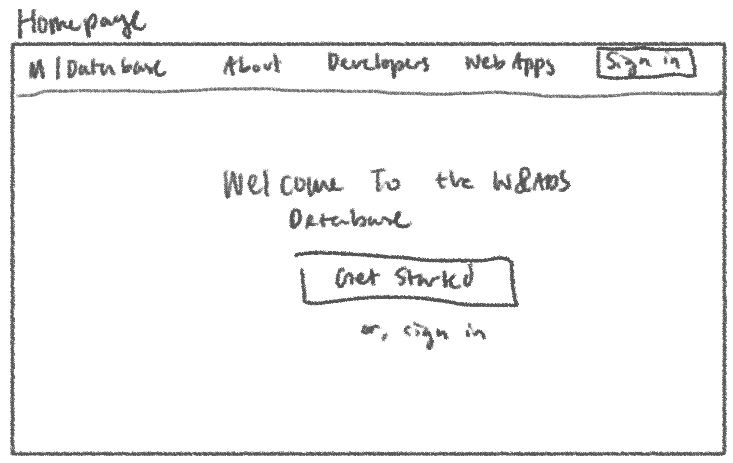 Homepage
M | Database About Developers Web Apps Sign in
Welcome To the
Database
Get Started
or, sign in